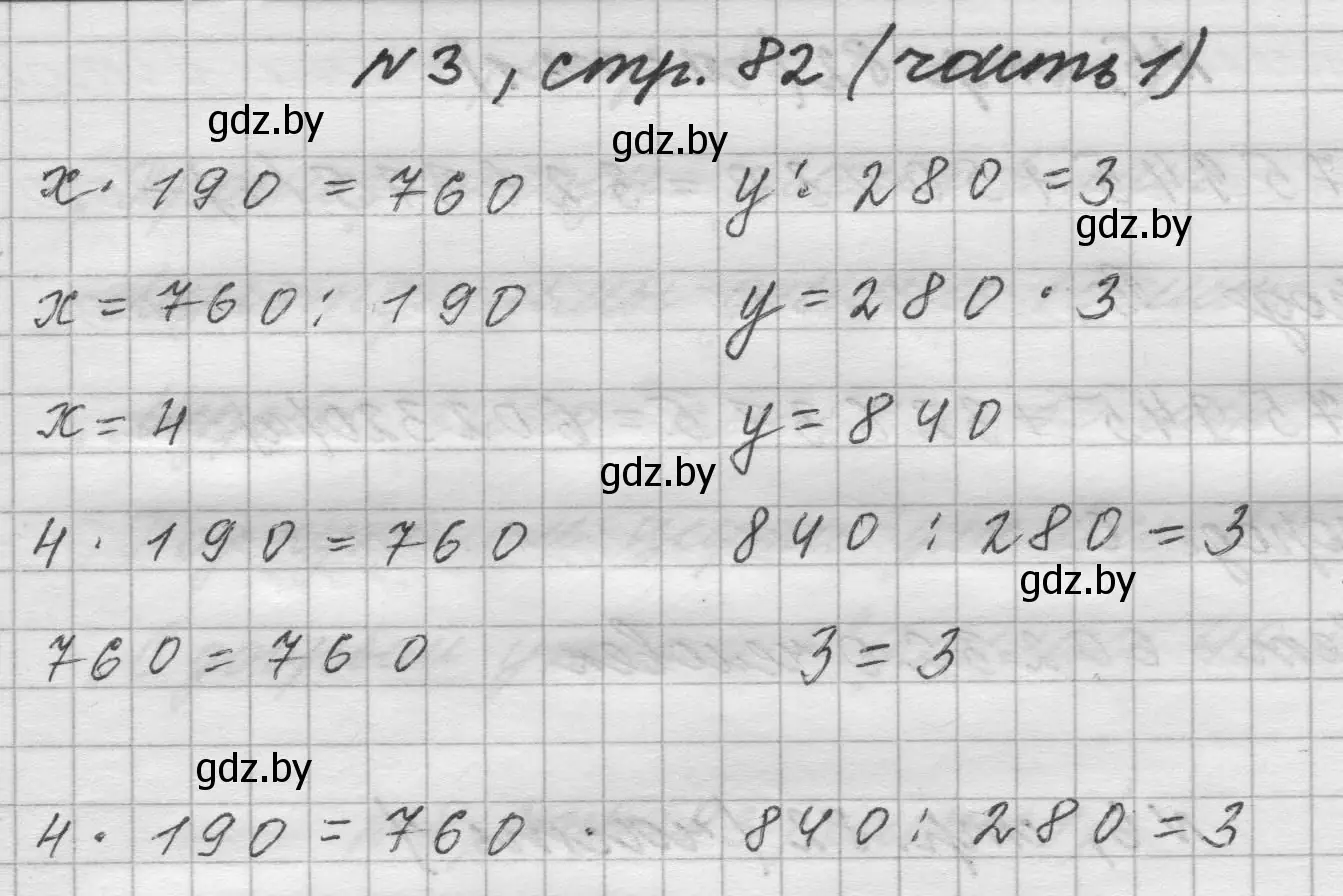 №3, стр. 82 (часть 1)
gdz.by
gdz.by
x · 190 = 760 y : 280 = 3
gdz.by
x = 760 : 190 y = 280 · 3
x = 4 y = 840
gdz.by
4 · 190 = 760 840 : 280 = 3
gdz.by
760 = 760 3 = 3
gdz.by
4 · 190 = 760 · 840 : 280 = 3